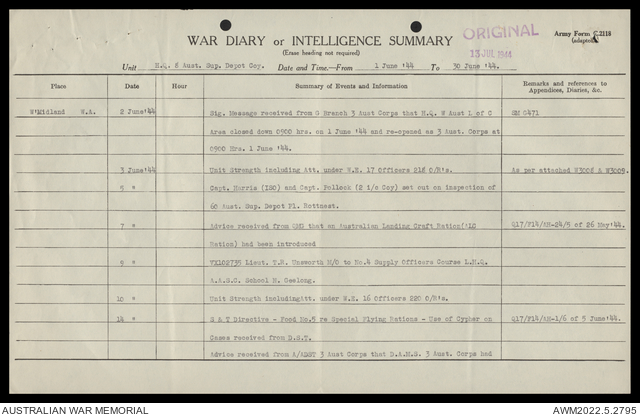 WAR DIARY or INTELLIGENCE SUMMARY
(Erase heading not required)
ORIGINAL
13 JUL 1944
Army Form C.2118
(adapted)
Unit H.Q. 8 Aust. Sup. Depot Coy. Date and Time.—From 1 June '44 To 30 June '44.
Place Date Hour Summary of Events and Information Remarks and references to Appendices, Diaries, &c.
W'Midland W.A. 2 June'44 Sig. Message received from G Branch 3 Aust Corps that H.Q. W Aust L of C SM G471
Area closed down 0500 hrs. on 1 June '44 and re-opened as 3 Aust. Corps at
0500 Hrs. 1 June '44.
3 June'44 Unit Strength including Att. under W.E. 17 Officers 218 O/R's. As per attached W3008 & W3009.
5 " Capt. Harris (ISO) and Capt. Pollock (2 i/c Coy) set out on inspection of
68 Aust. Sup. Depot Pl. Rottnest.
7 " Advice received from that an Australian Landing Craft Ration('LC Q17/F14/AM-24/5 of 26 May'44.
Ration) had been introduced
9 " WX102735 Lieut. T.R. Unsworth M/O to No.4 Supply Officers Course L.H.Q.
A.A.S.C. School M. Geelong.
10 " Unit Strength includingAtt. under W.E. 16 Officers 220 O/R's.
14 " S & T Directive - Food No.5 re Special Flying Rations - Use of Cypher on Q17/F14/AM-1/6 of 5 June'44.
Cases received from D.S.T.
Advice received from A/ADST 3 Aust Corps that D.A.M.S. 3 Aust. Corps had
AUSTRALIAN WAR MEMORIAL
AWM2022.5.2795